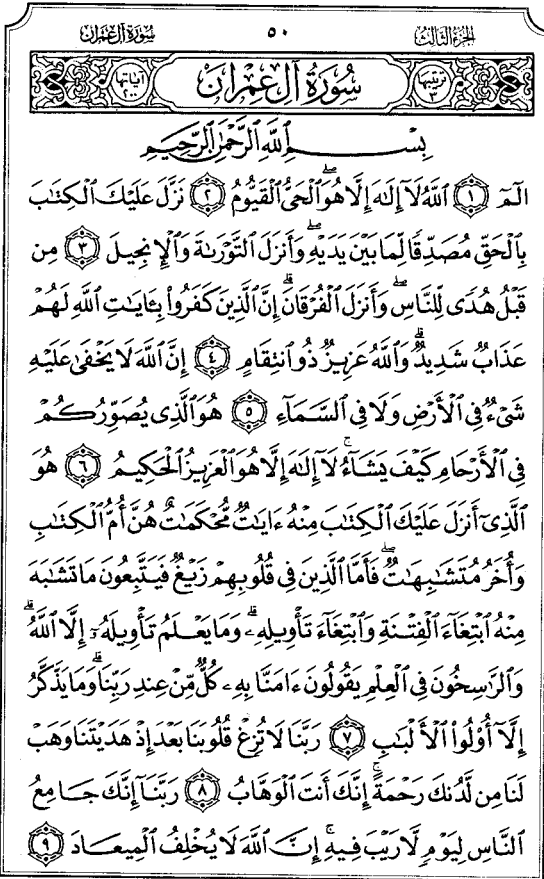 الجزء الثالث ٥٠ سورة آل عمران
ترتيبها ٣ سُورَةُ آلِ عِمْرَان آياتها ٢٠٠
بِسْمِ اللَّهِ الرَّحْمَٰنِ الرَّحِيمِ
الٓمٓ ١ اللَّهُ لَآ إِلَٰهَ إِلَّا هُوَ ۖ الْحَىُّ الْقَيُّومُ ٢ نَزَّلَ عَلَيْكَ الْكِتَٰبَ
بِالْحَقِّ مُصَدِّقًا لِّمَا بَيْنَ يَدَيْهِ ۖ وَأَنزَلَ التَّوْرَىٰةَ وَالْإِنجِيلَ ٣ مِن
قَبْلُ هُدًى لِّلنَّاسِ ۖ وَأَنزَلَ الْفُرْقَانَ ۗ إِنَّ الَّذِينَ كَفَرُوا۟ بِـَٔايَٰتِ اللَّهِ لَهُمْ
عَذَابٌ شَدِيدٌ ۗ وَاللَّهُ عَزِيزٌ ذُو انتِقَامٍ ٤ إِنَّ اللَّهَ لَا يَخْفَىٰ عَلَيْهِ
شَىْءٌ فِى الْأَرْضِ وَلَا فِى السَّمَآءِ ٥ هُوَ الَّذِى يُصَوِّرُكُمْ
فِى الْأَرْحَامِ كَيْفَ يَشَآءُ ۚ لَآ إِلَٰهَ إِلَّا هُوَ الْعَزِيزُ الْحَكِيمُ ٦ هُوَ
الَّذِىٓ أَنزَلَ عَلَيْكَ الْكِتَٰبَ مِنْهُ ءَايَٰتٌ مُّحْكَمَٰتٌ هُنَّ أُمُّ الْكِتَٰبِ
وَأُخَرُ مُتَشَٰبِهَٰتٌ ۖ فَأَمَّا الَّذِينَ فِى قُلُوبِهِمْ زَيْغٌ فَيَتَّبِعُونَ مَا تَشَٰبَهَ
مِنْهُ ابْتِغَآءَ الْفِتْنَةِ وَابْتِغَآءَ تَأْوِيلِهِۦ ۗ وَمَا يَعْلَمُ تَأْوِيلَهُۥٓ إِلَّا اللَّهُ ۗ
وَالرَّٰسِخُونَ فِى الْعِلْمِ يَقُولُونَ ءَامَنَّا بِهِۦ كُلٌّ مِّنْ عِندِ رَبِّنَا ۗ وَمَا يَذَّكَّرُ
إِلَّآ أُو۟لُوا۟ الْأَلْبَٰبِ ٧ رَبَّنَا لَا تُزِغْ قُلُوبَنَا بَعْدَ إِذْ هَدَيْتَنَا وَهَبْ
لَنَا مِن لَّدُنكَ رَحْمَةً ۚ إِنَّكَ أَنتَ الْوَهَّابُ ٨ رَبَّنَآ إِنَّكَ جَامِعُ
النَّاسِ لِيَوْمٍ لَّا رَيْبَ فِيهِ ۚ إِنَّ اللَّهَ لَا يُخْلِفُ الْمِيعَادَ ٩